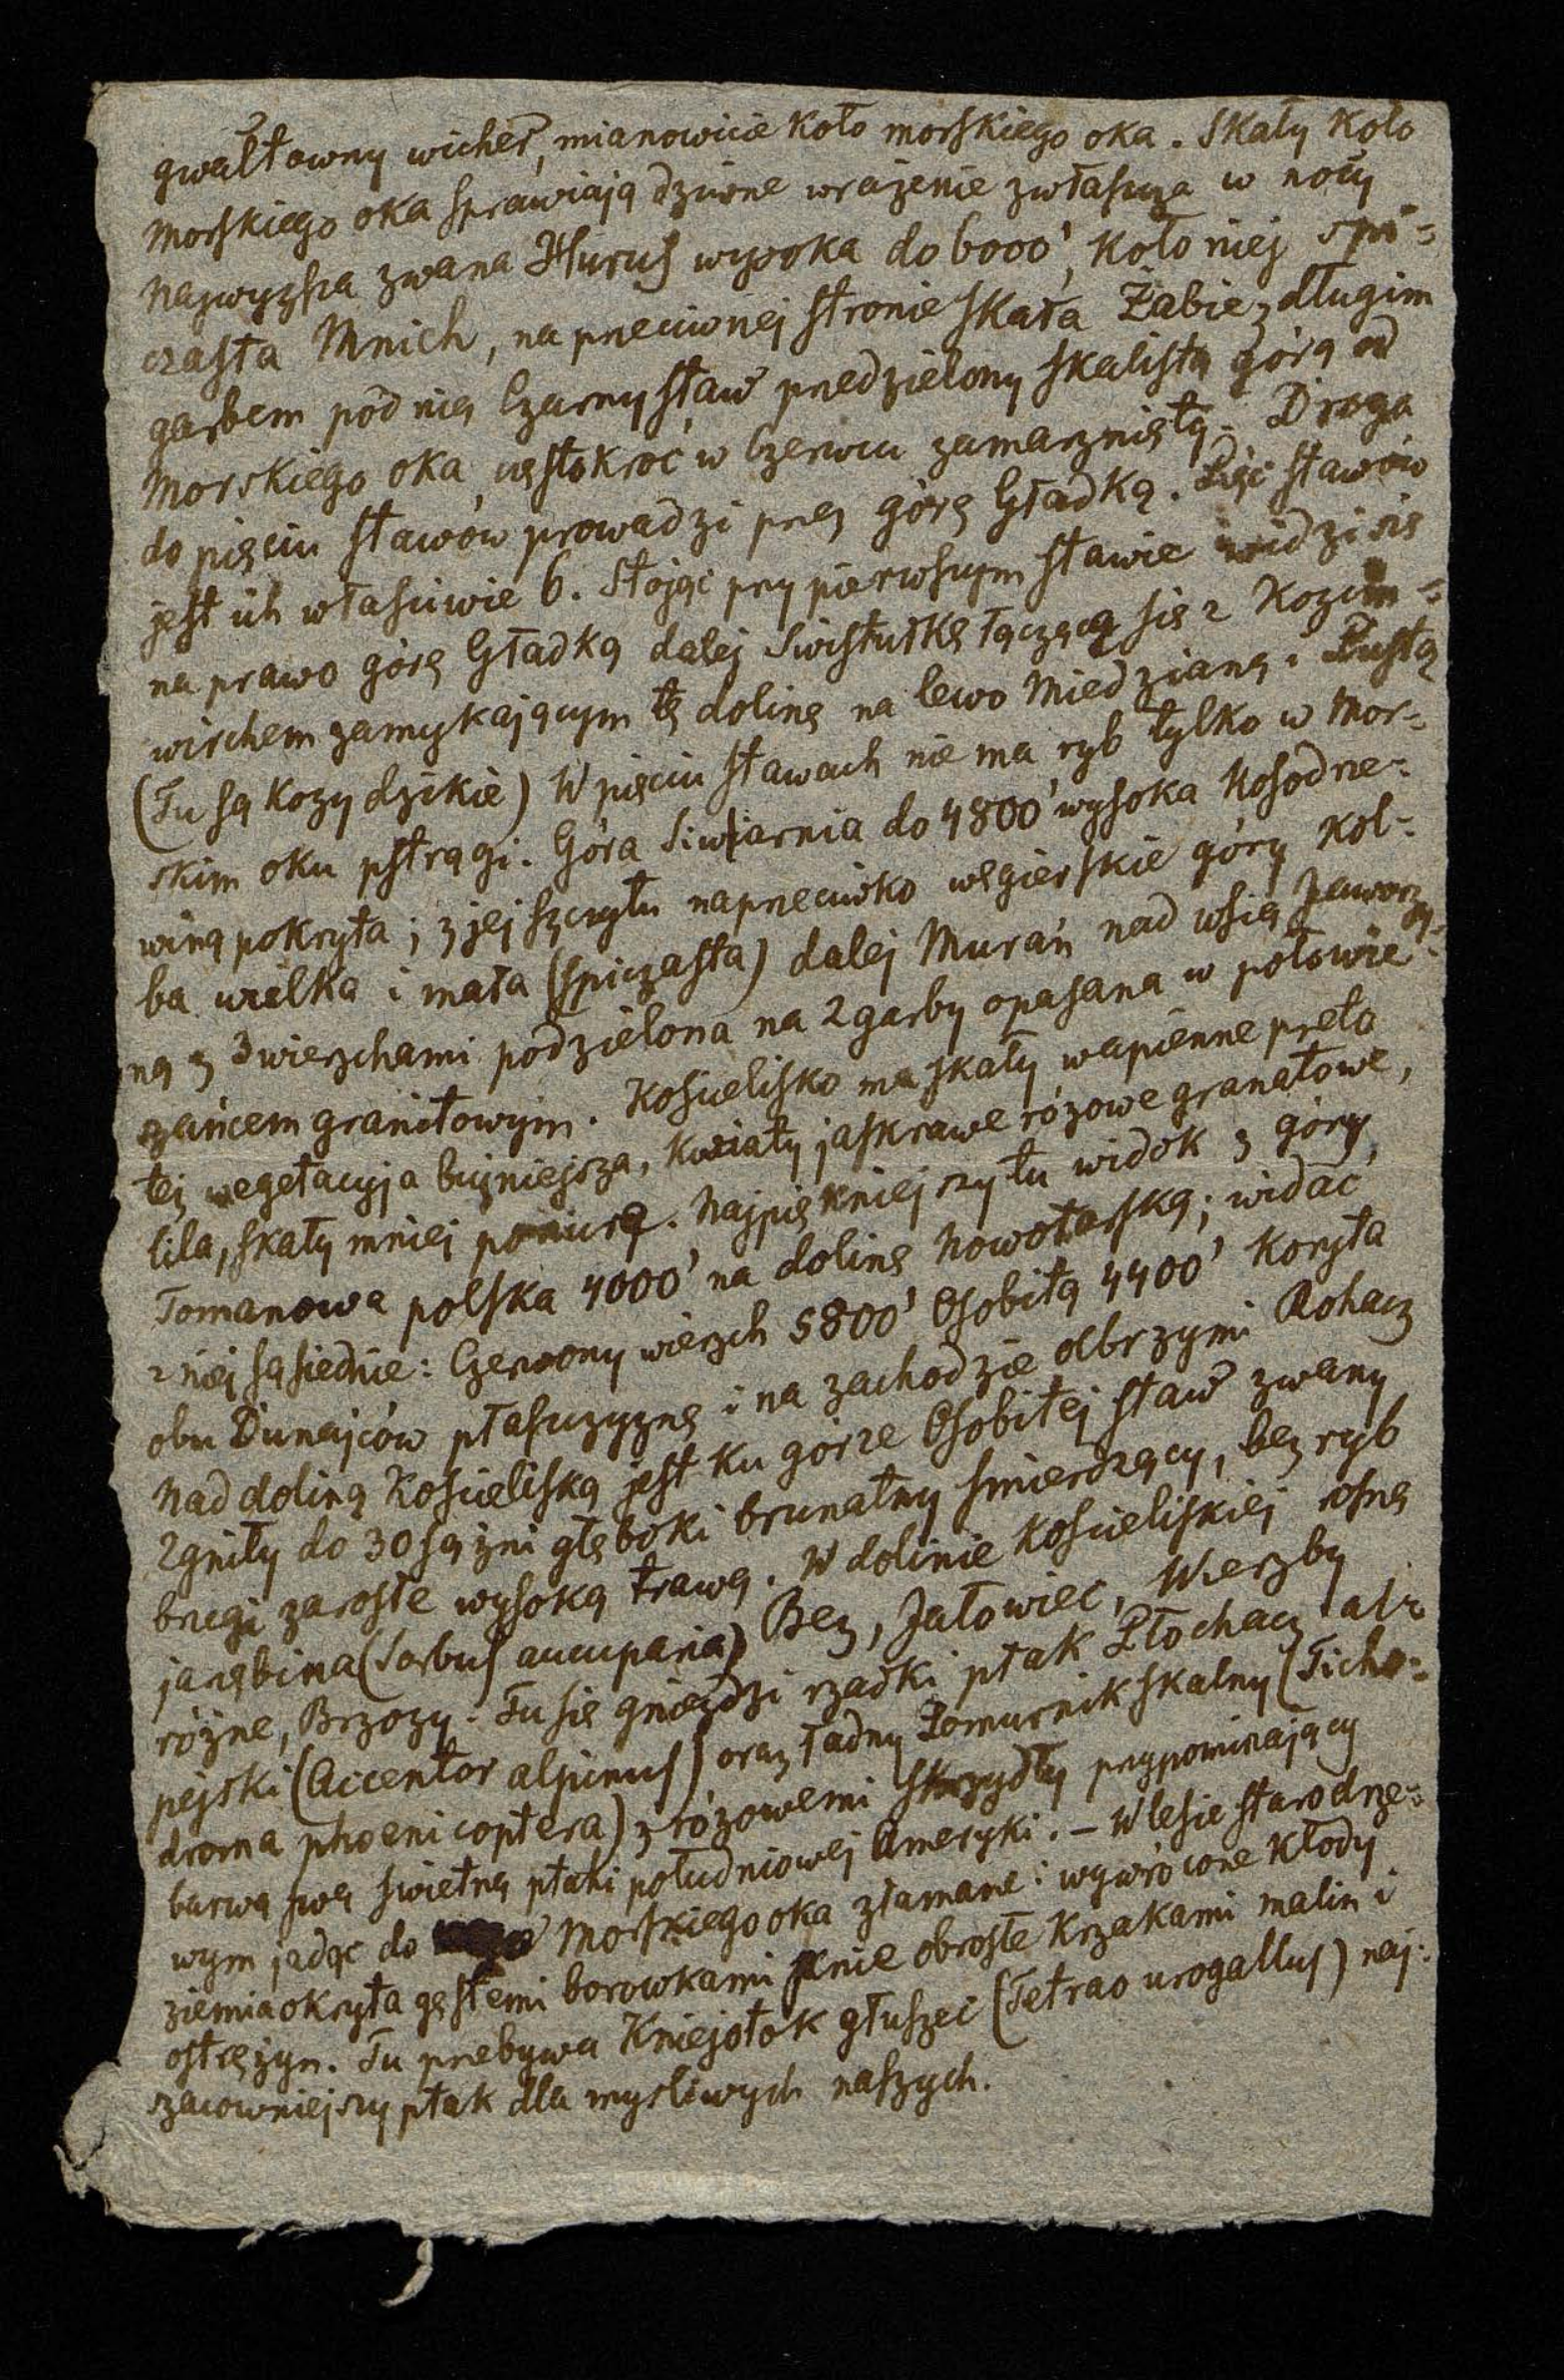 gwałtowny wicher, mianowicie koło morskiego oka. Skały koło
morskiego oka sprawiają dziwne wrażenie zwłaszcza w nocy
najwyższa zwana Hurus wysoka do 6000', koło niej spi-
czasta Mnich, na przeciwnej stronie skała Żabie z długim
garbem pod nią Czarny staw przedzielony skalistą górą od
morskiego oka, częstokroć w Czerwcu zamarznięty. Droga
do pięciu stawów prowadzi przez górę Gładką. Pięć stawów
jest ich właściwie 6. Stojąc przy pierwszym stawie widzi się
na prawo górę Gładką dalej Swistułkę łączącą się z Kozim-
wirchem zamykającym tę dolinę na lewo Miedzianą i Pustą
(Tu są kozy dzikie) W pięciu stawach nie ma ryb tylko w Mor-
skim oku pstrągi. Góra Siwiarnia do 4800' wysoka Kosodrze-
winą pokryta; z jej szczytu naprzeciwko węgierskie góry Kol-
ba wielka i mała (spiczasta) dalej Murań nad wsią Jaworzy-
ną z 3 wierzchami podzielona na 2 garby opasana w połowie
szańcem granitowym. Kościelisko ma skały wapienne przeto
tej wegetacyja bujniejsza, kwiaty jaskrawe różowe granatowe,
lila, skały mniej ponure. Najpiękniejszy tu widok z góry
Tomanowa polska 4000' na dolinę Nowotarską; widać
z niej sąsiednie: Czerwony wierzch 5800' Osobitą 4400' koryta
obu Dunajców płaszczyznę i na zachodzie olbrzymi Rohacz
Nad doliną Kościeliską jest ku górze Osobitej staw zwany
Zgniły do 30 sążni głęboki brunatny smierdzący, bez ryb
brzegi zarosłe wysoką trawą. W dolinie Kościeliskiej rosną
jarębina (Sorbus aucuparia) Bez, Jałowiec, Wierzby
różne, Brzozy. Tu się gnieździ rzadki ptak Płochacz al-
pejski (Accentor alpinus) oraz ładny Pomurnik skalny (Ticho-
droma phoenicoptera) z różowemi skrzydły przypominający
barwą swą świetną ptaki południowej Ameryki. – W lesie starodrze-
wym jadąc do Morskiego oka złamane i wywrócone kłody
ziemia okryta gęstemi borowkami pnie obrosłe krzakami malin i
ostrężyn. Tu przebywa Kniejotok głuszec (Tetrao urogallus) naj-
szacowniejszy ptak dla mysliwych naszych.